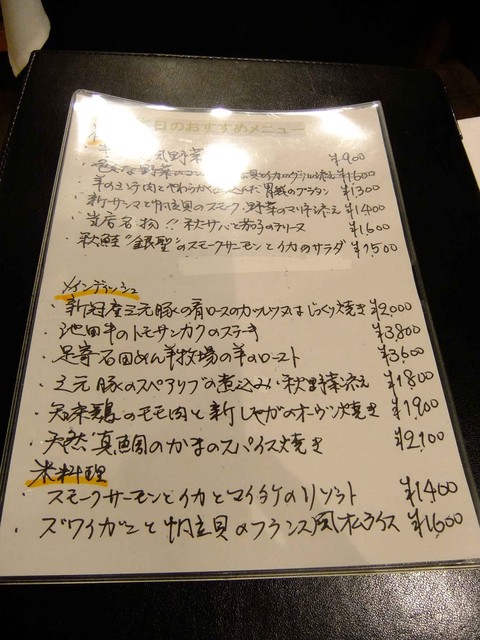 日のおすすめメニュー
風野菜 ¥900
色々な野菜の 貝とイカのグリル添え ¥1600
羊のミンチ肉とやわらかく込んだ胃袋のグラタン ¥1300
新サンマと帆立貝のスモーク 野菜のマリネ添え ¥1400
当店名物!! 秋サバと茄子のテリーヌ ¥1600
秋鮭"銀聖"のスモークサーモンとイカのサラダ ¥1500
メインディッシュ
・新冠産三元豚の肩ロースのカツレツ又はじっくり焼き ¥2000
・池田牛のトモサンカクのステーキ ¥3800
・足寄石田めん羊牧場の羊のロースト ¥3600
・三元豚のスペアリブの煮込み 秋野菜添え ¥1800
・知床鶏のモモ肉と新じゃがのオーヴン焼き ¥1900
・天然真鯛のかまのスパイス焼き ¥2100
米料理
・スモークサーモンとイカとマイタケのリゾット ¥1400
・ズワイガニと帆立貝のフランス風オムライス ¥1600